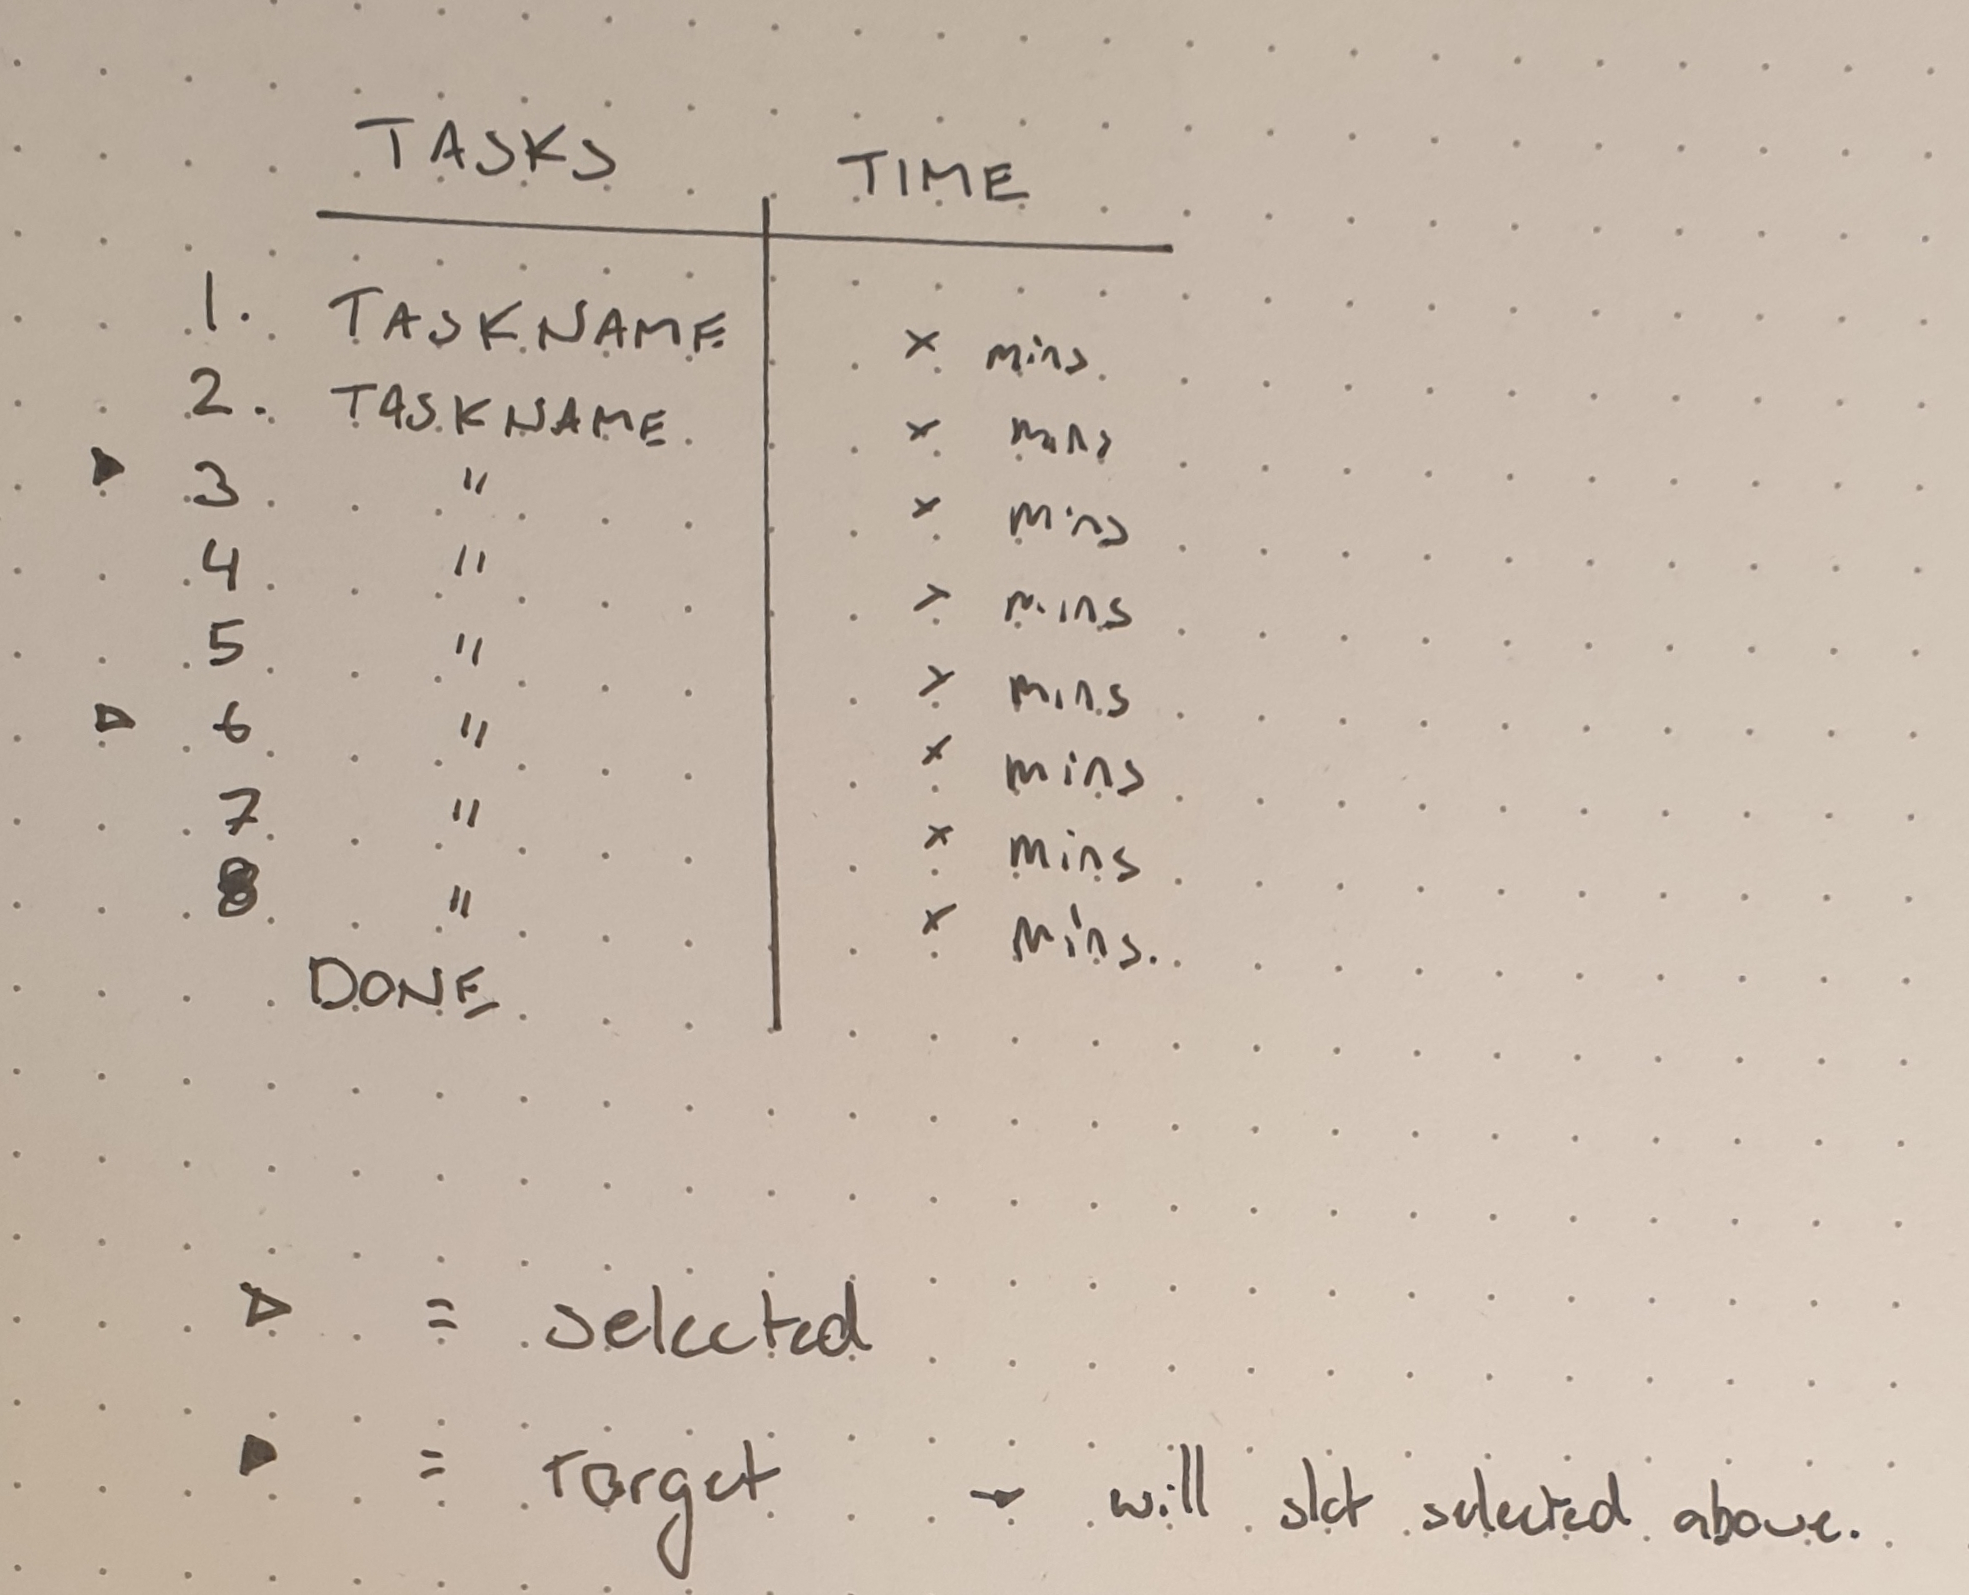 TASKS TIME
1. TASKNAME x mins.
2. TASKNAME x mins
▶ 3 " x mins
4 " x mins
5 " x mins
▷ 6 " x mins
7 " x mins
8 " x mins.
DONE
▷ = selected
▶ = Target → will slot selected above.